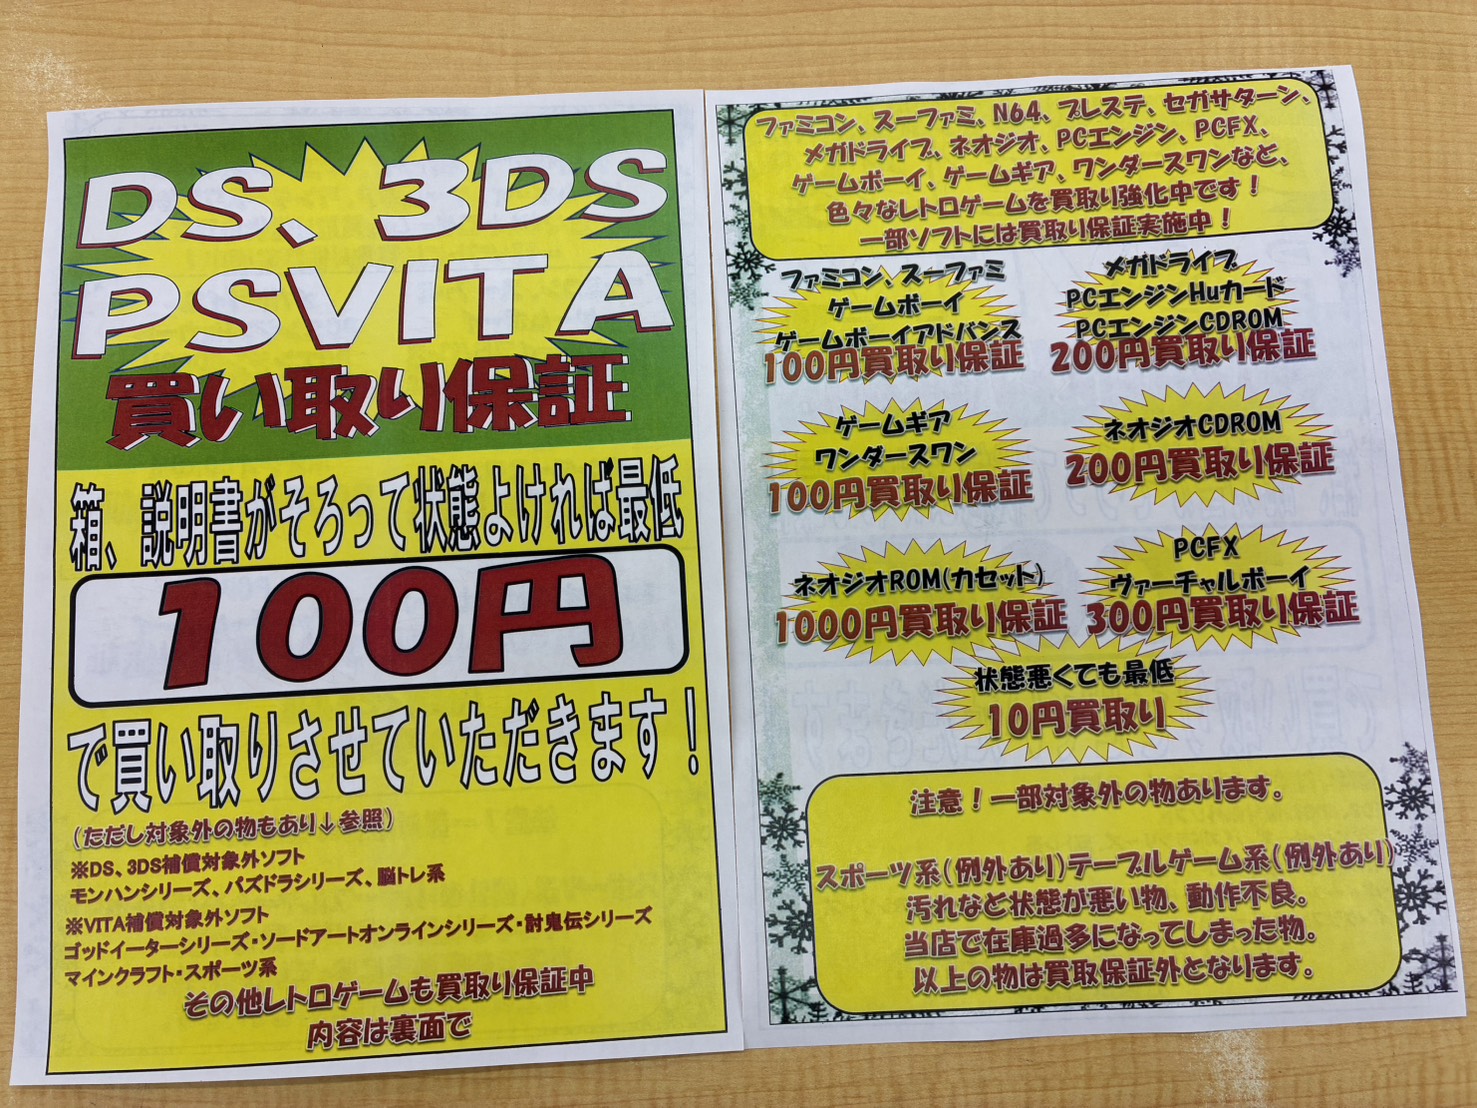 DS、3DS
PSVITA
買い取り保証
箱、説明書がそろって状態よければ最低
100円
で買い取りさせていただきます!
(ただし対象外の物もあり↓参照)
※DS、3DS補償対象外ソフト
モンハンシリーズ、パズドラシリーズ、脳トレ系
※VITA補償対象外ソフト
ゴッドイーターシリーズ・ソードアートオンラインシリーズ・討鬼伝シリーズ
マインクラフト・スポーツ系
その他レトロゲームも買取り保証中
内容は裏面で
ファミコン、スーファミ、N64、プレステ、セガサターン、
メガドライブ、ネオジオ、PCエンジン、PCFX、
ゲームボーイ、ゲームギア、ワンダースワンなど、
色々なレトロゲームを買取り強化中です!
一部ソフトには買取り保証実施中!
ファミコン、スーファミ
ゲームボーイ
ゲームボーイアドバンス
100円買取り保証
メガドライブ
PCエンジンHuカード
PCエンジンCDROM
200円買取り保証
ゲームギア
ワンダースワン
100円買取り保証
ネオジオCDROM
200円買取り保証
ネオジオROM(カセット)
1000円買取り保証
PCFX
ヴァーチャルボーイ
300円買取り保証
状態悪くても最低
10円買取り
注意!一部対象外の物あります。
スポーツ系(例外あり)テーブルゲーム系(例外あり)
汚れなど状態が悪い物、動作不良。
当店で在庫過多になってしまった物。
以上の物は買取保証外となります。